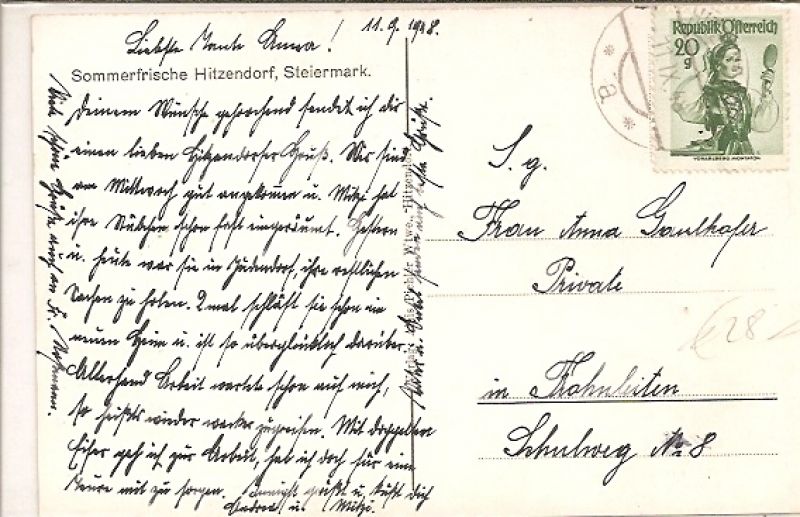 11.9.1948.
Liebste Tante Anna!
Sommerfrische Hitzendorf, Steiermark.
Deinem Wunsche gehorchend sendet ich dir
einen lieben Hitzendorfer Gruß. Wir sind
am Mittwoch gut angekommen u. Mitzi hat
ihre Stübchen schon fast eingeräumt. Gestern
u. heute war sie in Judendorf, ihre restlichen
Sachen zu holen. 2mal schläft sie schon im
neuen Heim u. ist so überglücklich darüber.
Allerhand Arbeit wartete schon auf mich,
so heißts wieder wacker zugreifen. Mit doppeltem
Eifer geh ich zur Arbeit, hab ich doch für eine
Teure mit zu sorgen. Innigst grüßt u. küßt dich
u. Mitzi.
Viele schöne Grüße auch an Fr.
Republik Österreich
20
g
VORARLBERG, MONTAFON
a
S. g.
Frau Anna Gaulhofer
Private
in Frohnleiten
Schulweg No 8
€ 28